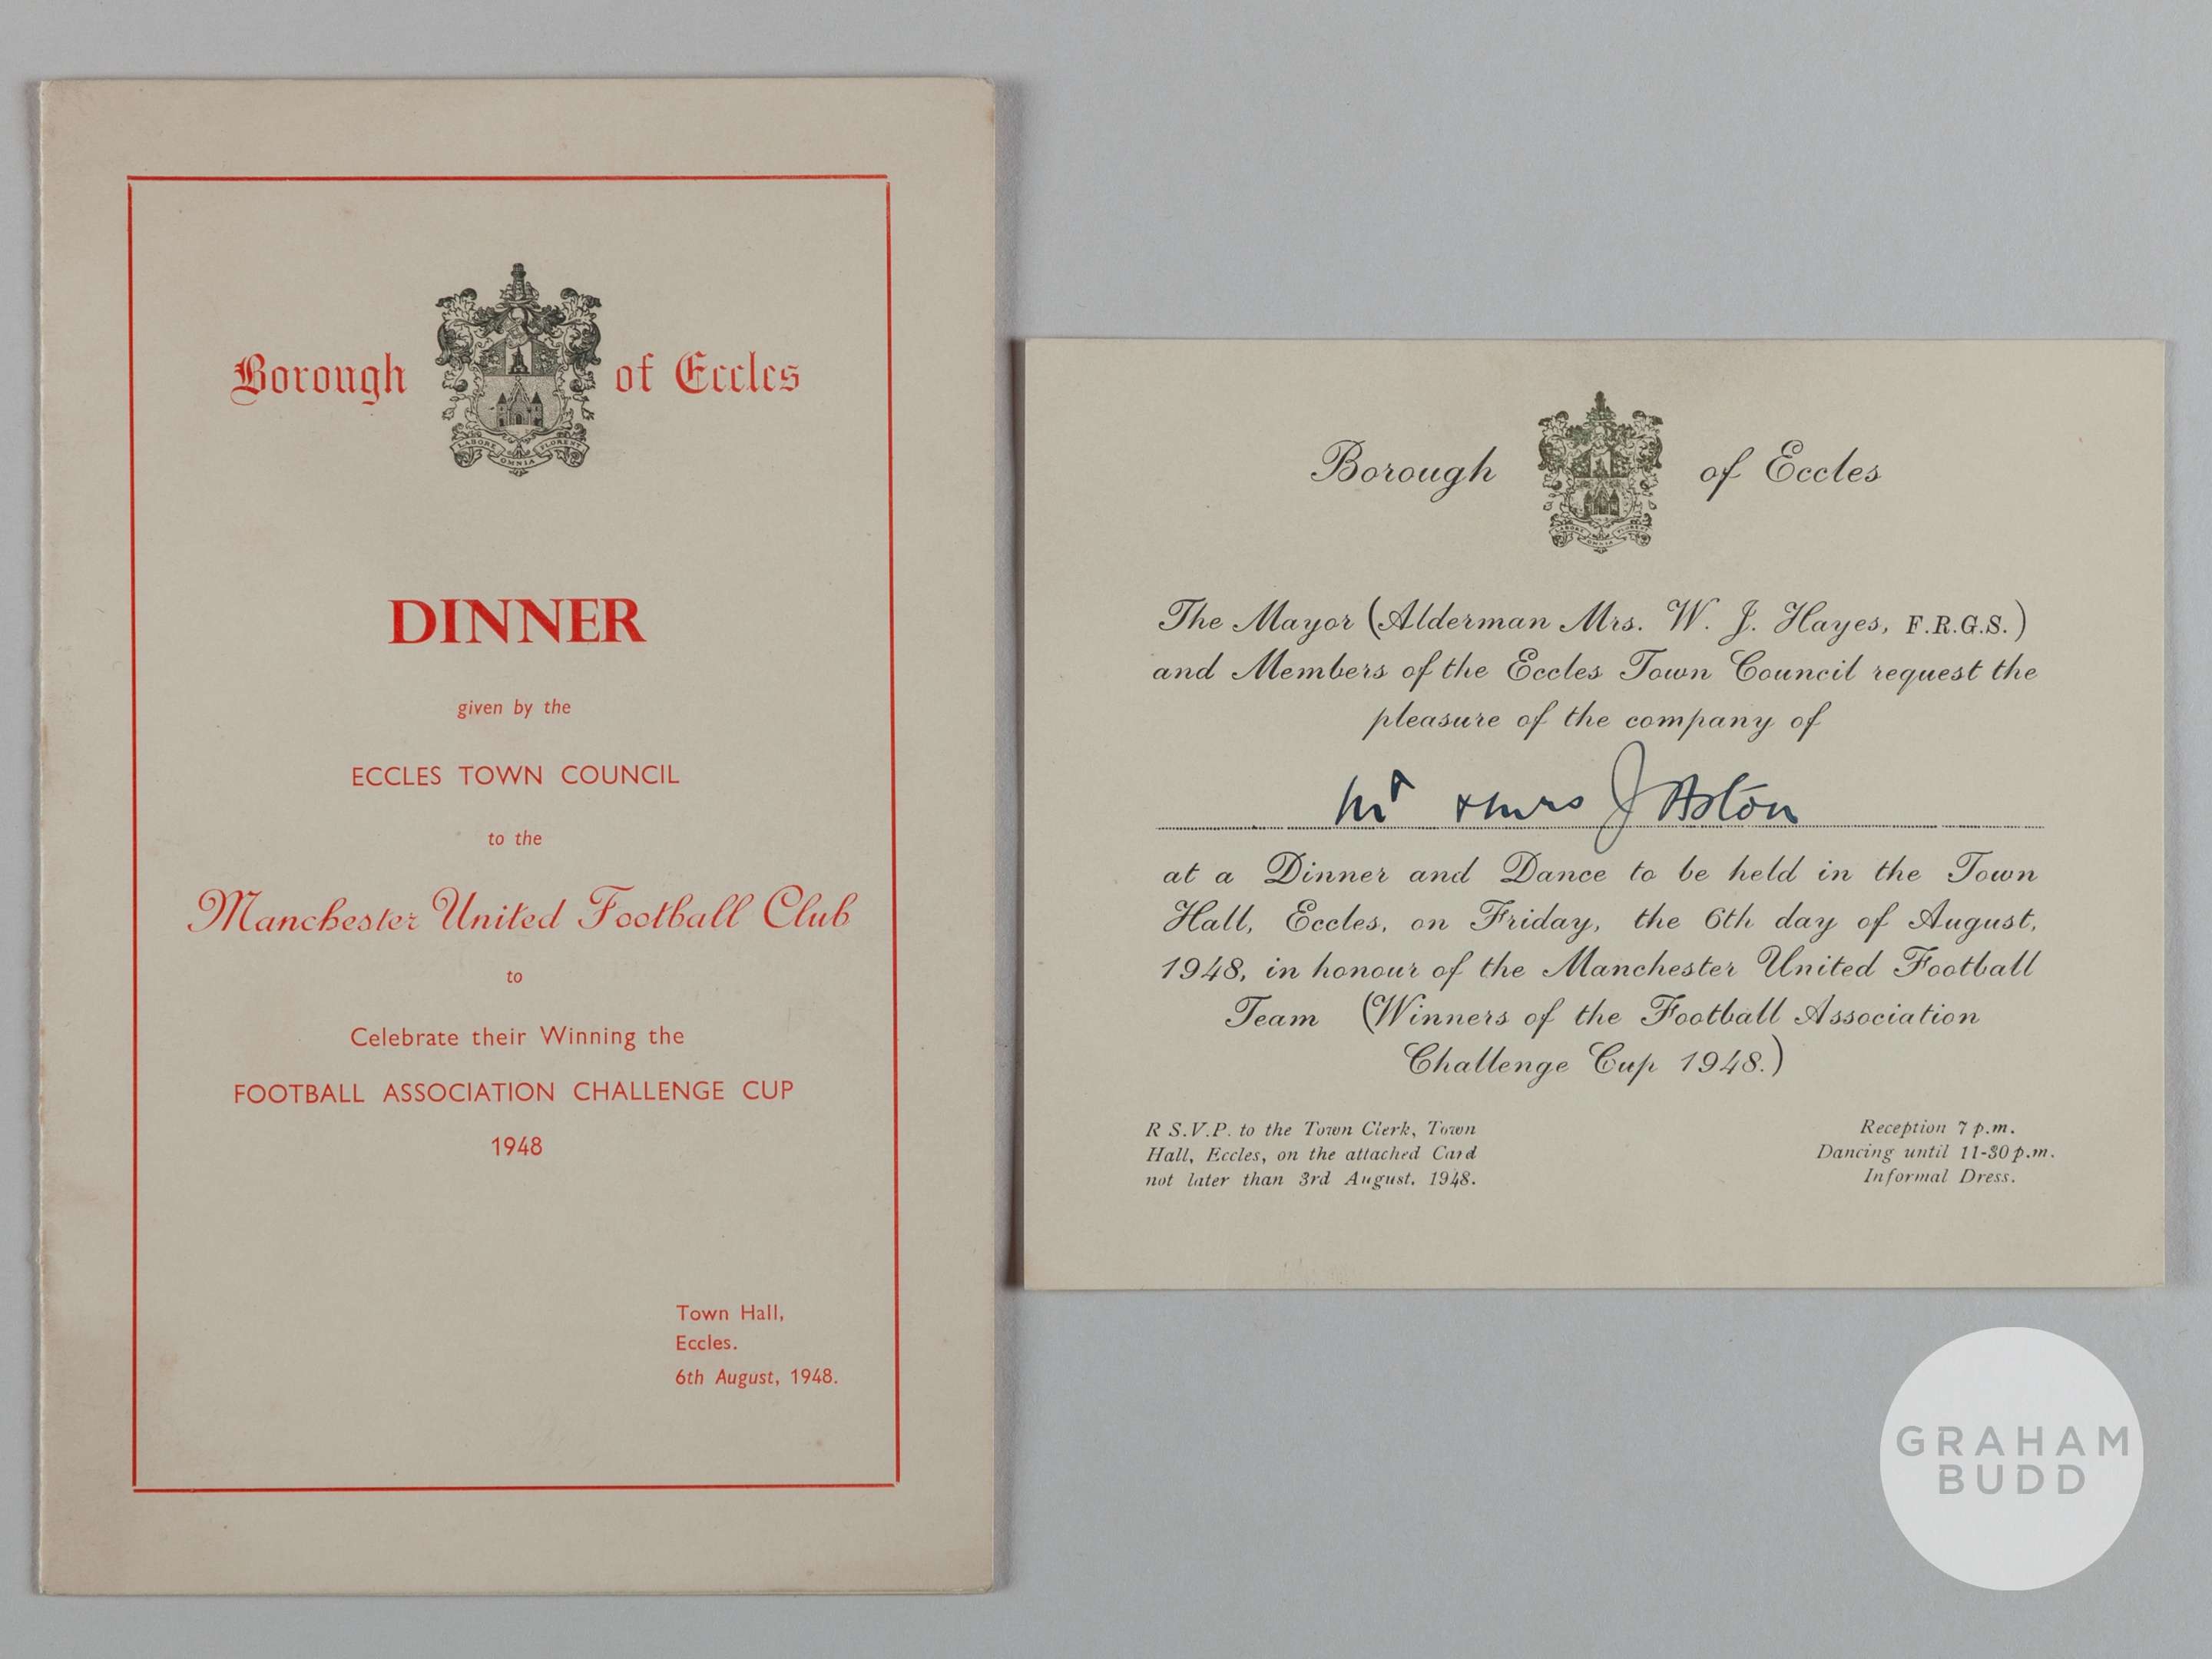 Borough of Eccles
LABORE OMNIA FLORENT
DINNER
given by the
ECCLES TOWN COUNCIL
to the
Manchester United Football Club
to
Celebrate their Winning the
FOOTBALL ASSOCIATION CHALLENGE CUP
1948
Town Hall,
Eccles.
6th August, 1948.
Borough of Eccles
LABORE OMNIA FLORENT
The Mayor (Alderman Mrs. W. J. Hayes, F.R.G.S.)
and Members of the Eccles Town Council request the
pleasure of the company of
Mr & Mrs J Aston
at a Dinner and Dance to be held in the Town
Hall, Eccles, on Friday, the 6th day of August,
1948, in honour of the Manchester United Football
Team (Winners of the Football Association
Challenge Cup 1948.)
R S.V.P. to the Town Clerk, Town
Hall, Eccles, on the attached Card
not later than 3rd August, 1948.
Reception 7 p.m.
Dancing until 11-30 p.m.
Informal Dress.
GRAHAM
BUDD